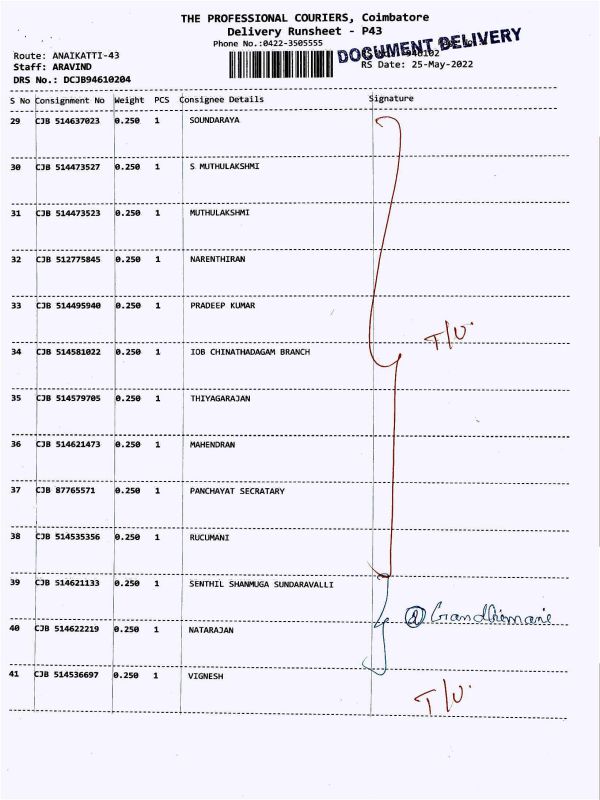 THE PROFESSIONAL COURIERS, Coimbatore
Delivery Runsheet - P43
Phone No.:0422-3505555
DOCUMENT DELIVERY
Route: ANAIKATTI-43
Staff: ARAVIND
RS Date: 25-May-2022
DRS No.: DCJB94610204
S No Consignment No Weight PCS Consignee Details Signature
29 CJB 514637023 0.250 1 SOUNDARAYA
30 CJB 514473527 0.250 1 S MUTHULAKSHMI
31 CJB 514473523 0.250 1 MUTHULAKSHMI
32 CJB 512775845 0.250 1 NARENTHIRAN
33 CJB 514495940 0.250 1 PRADEEP KUMAR
T/U.
34 CJB 514581022 0.250 1 IOB CHINATHADAGAM BRANCH
35 CJB 514579705 0.250 1 THIYAGARAJAN
36 CJB 514621473 0.250 1 MAHENDRAN
37 CJB 87765571 0.250 1 PANCHAYAT SECRATARY
38 CJB 514535356 0.250 1 RUCUMANI
39 CJB 514621133 0.250 1 SENTHIL SHANMUGA SUNDARAVALLI
40 CJB 514622219 0.250 1 NATARAJAN
41 CJB 514536697 0.250 1 VIGNESH
T/U.